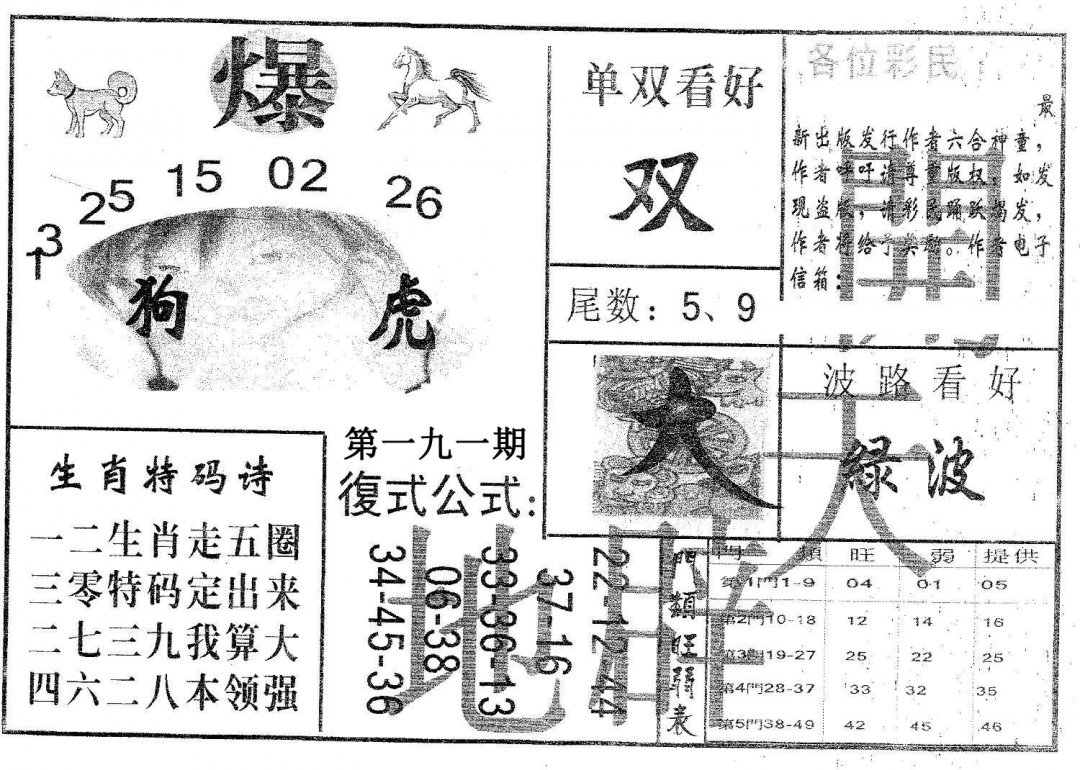 爆
13
25
15
02
26
狗
虎
单双看好
双
尾数：5、9
各位彩民：
最
新出版发行作者六合神童，
作者呼吁请尊重版权，如发
现盗版，请彩民踊跃揭发，
作者将给予奖励。作者电子
信箱：
大
波路看好
緑波
生肖特码诗
一二生肖走五圈
三零特码定出来
二七三九我算大
四六二八本领强
第一九一期
復式公式：
34-45-36
06-38
33-36-13
37-16
22-12-44
門類旺弱表
門 類 旺 弱 提供
第1門1-9 04 01 05
第2門10-18 12 14 16
第3門19-27 25 22 25
第4門28-37 33 32 35
第5門38-49 42 45 46
天
地